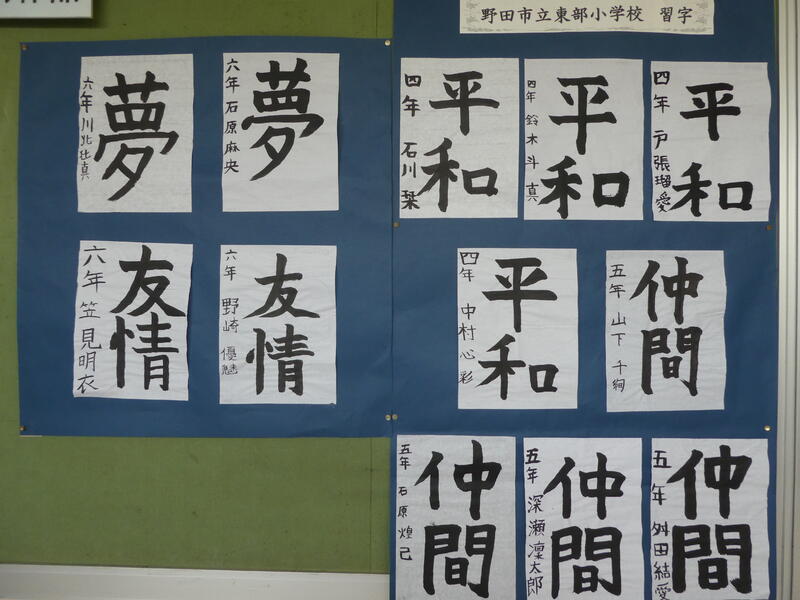 野田市立東部小学校 習字
夢
六年 川北比真
夢
六年 石原麻央
友情
六年 笠見明衣
友情
六年 野崎優魅
平和
四年 石川栞
平和
四年 鈴木斗真
平和
四年 戸張瑠愛
平和
四年 中村心彩
仲間
五年 山下千絢
仲間
五年 石原煌己
仲間
五年 深瀬凜太郎
仲間
五年 舛田結愛